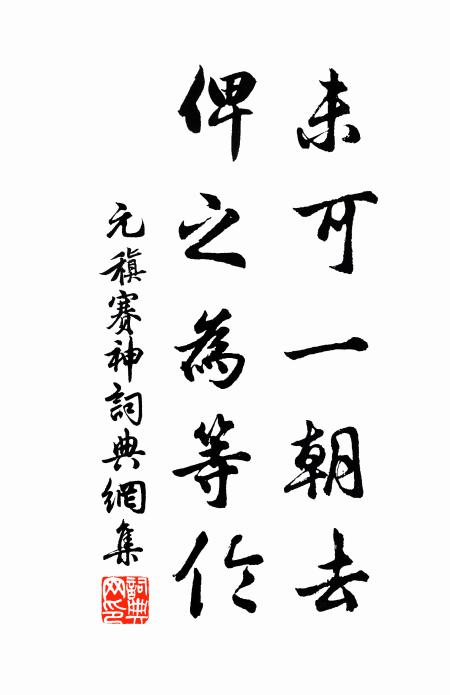 未可一朝去
俾之為等倫
元稹賽神詞典網集
詞典网印